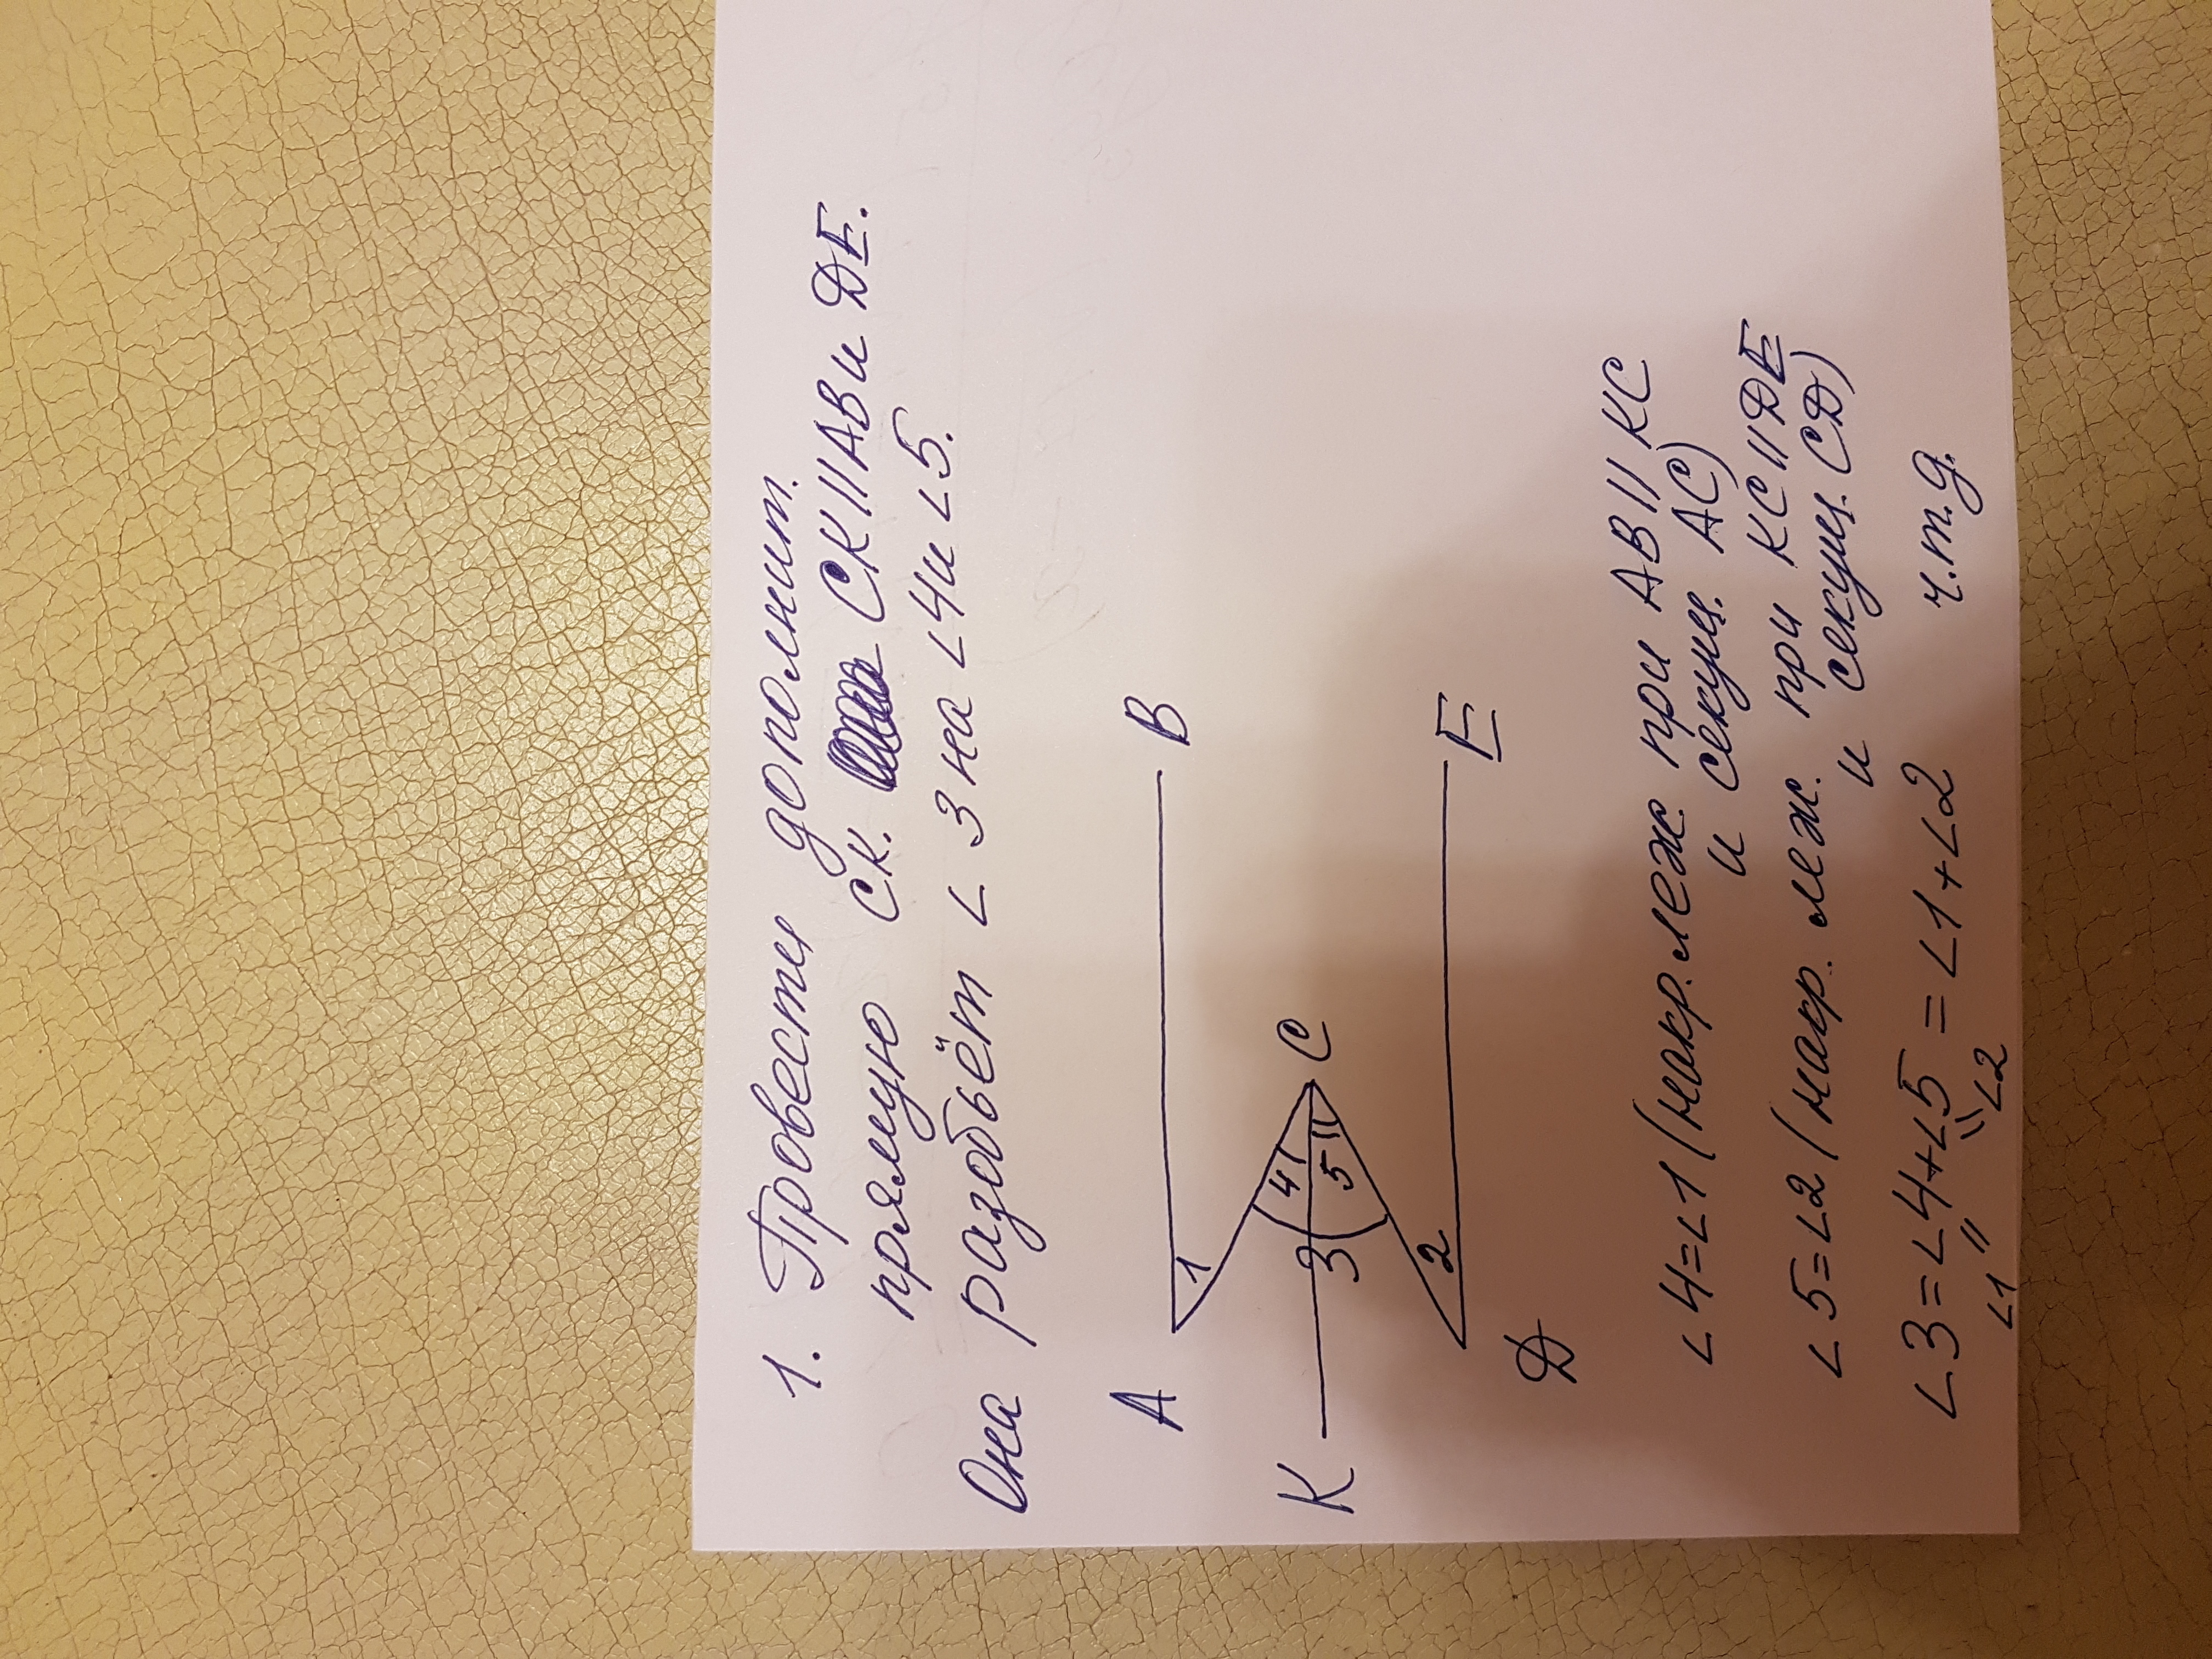 1. Провести дополнит.
прямую СК. СК || АВ и ДЕ.
Она разобьёт ∠3 на ∠4 и ∠5.
А
В
1
К
3
4
5
С
2
Д
Е
∠4=∠1 (накр. леж при АВ || КС
и секущ. АС)
∠5=∠2 (накр. леж. при КС || ДЕ
и секущ. СД)
∠3=∠4+∠5 = ∠1+∠2
∠1 ∠2
ч.т.д.